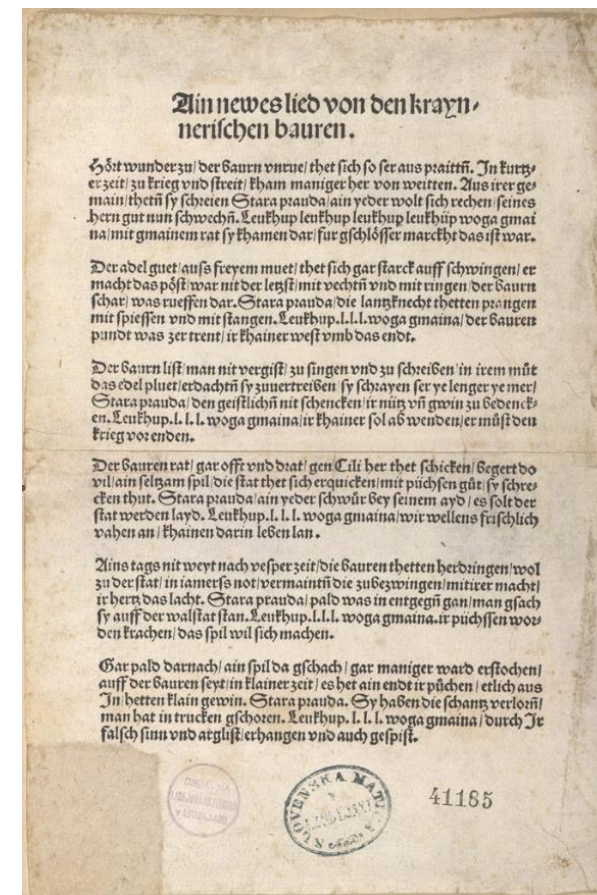 Ain newes lied von den krayn⸗
nerischen bauren.
Hört wunder zu/ der baurn vnrue/ thet sich so ser aus praittñ. In kurtz⸗
er zeit/ zu krieg vnd streit/ kham maniger her von weitten. Aus irer ge⸗
main/ thetñ sy schreien Stara prauda/ ain yeder wolt sich rechen/ seines
hern gut nun schwechñ. Leukhup leukhup leukhup leukhup woga gmai
na/ mit gmainem rat sy khamen dar/ fur gschlösser marckht das ist war.
Der adel guet/ auss freyem muet/ thet sich gar starck auff schwingen/ er
macht das pöst/ war nit der letzst/ mit vechtñ vnd mit ringen/ der baurn
schar/ was rueffen dar. Stara prauda/ die lantzknecht thetten prangen
mit spiessen vnd mit stangen. Leukhup.l.l.l. woga gmaina/ der bauren
pundt was zer trent/ ir khainer west vmb das endt.
Der baurn list/ man nit vergist/ zu singen vnd zu schreiben/ in irem müt
das edel pluet/ erdachtñ sy zuuertreiben/ sy schrayen ser ye lenger ye mer/
Stara prauda/ den geistlichñ nit schencken/ ir nütz vñ gwin zu bedenck⸗
en. Leukhup.l.l.l. woga gmaina/ ir khainer sol ab wenden/ er müst den
krieg vor enden.
Der bauren rat/ gar offt vnd drat/ gen Cili her thet schicken/ begert do
vil/ ain seltzam spil/ die stat thet sich erquicken/ mit püchsen güt/ sy schre⸗
cken thut. Stara prauda/ ain yeder schwür bey seinem ayd/ es solt der
stat werden layd. Leukhup.l.l.l. woga gmaina/ wir wellens frischlich
vahen an/ khainen darin leben lan.
Ains tags nit weyt nach vesper zeit/ die bauren thetten herdringen/ wol
zu der stat/ in iamerss not/ vermaintñ die zubezwingen/ mit irer macht/
ir hertz das lacht. Stara prauda/ pald was in entgegñ gan/ man gsach
sy auff der walstat stan. Leukhup.l.l.l. woga gmaina. ir püchssen wor⸗
den krachen/ das spil wil sich machen.
Gar pald darnach/ ain spil da gschach/ gar maniger ward erstochen/
auff der bauren seyt/ in klainer zeit/ es het ain endt ir püchen/ etlich aus
In/ hetten klain gewin. Stara prauda. Sy haben die schantz verlorñ/
man hat in trucken gschoren. Leukhup.l.l.l. woga gmaina/ durch Ir
falsch sinn vnd arglist/ erhangen vnd auch gespist.
SLOVENSKA MATICA
41185